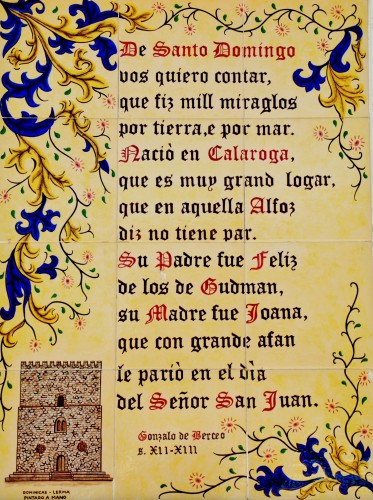 De Santo Domingo
vos quiero contar,
que fiz mill miraglos
por tierra,e por mar.
Naciò en Calaroga,
que es muy grand logar,
que en aquella Alfoz
diz no tiene par.
Su Padre fue Feliz
de los de Gudman,
su Madre fue Joana,
que con grande afan
le pariò en el dìa
del Señor San Juan.
Gonzalo de Berceo
s. XII-XIII
DOMINICAS - LERMA
PINTADO A MANO